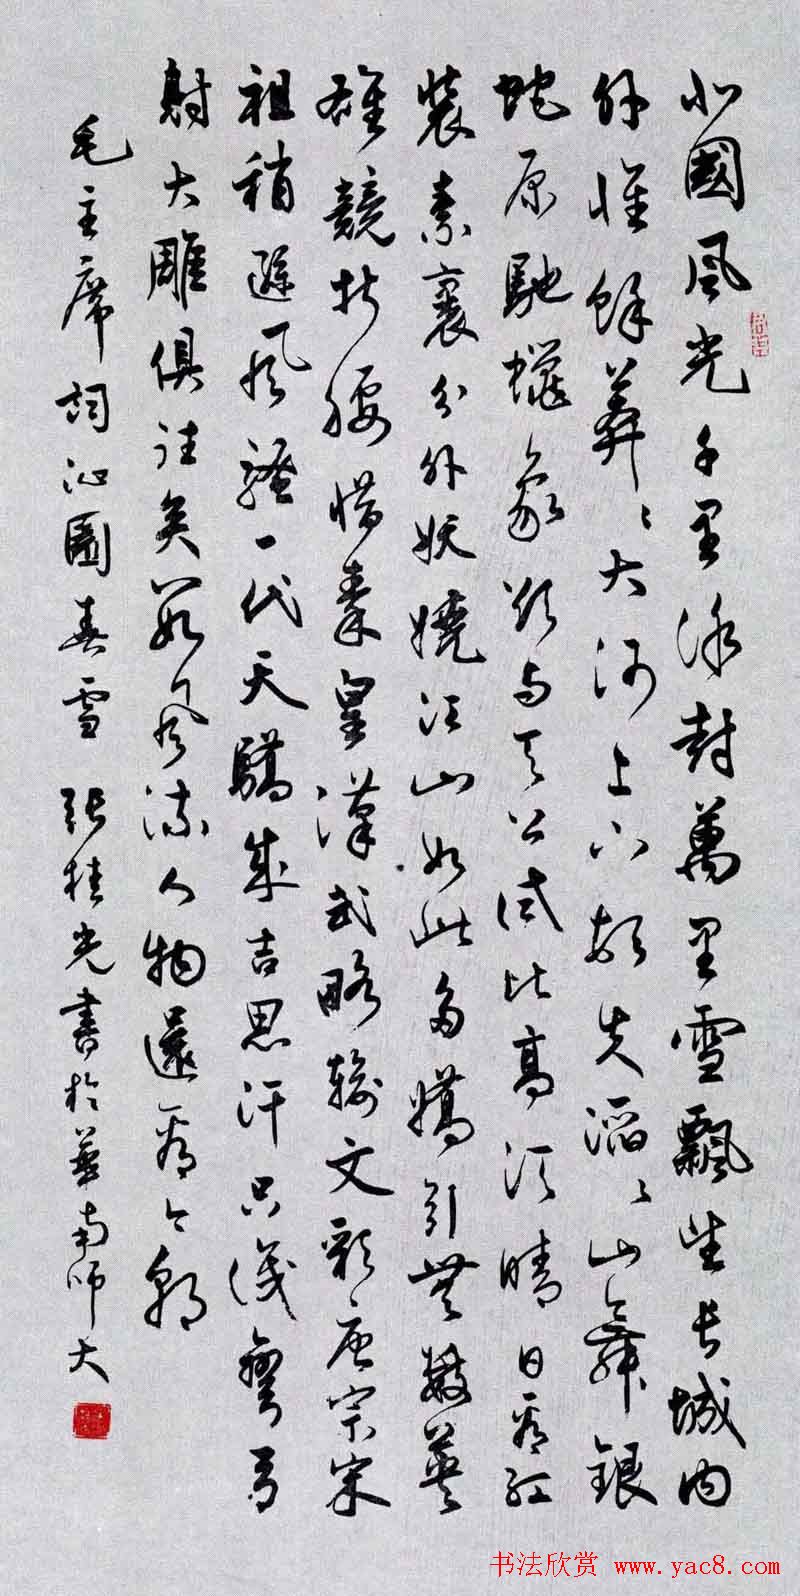 北國風光千里冰封萬里雪飄望長城内
外惟餘莽〻大河上下頓失滔〻山舞銀
蛇原馳蠟象欲與天公試比高須晴日看紅
裝素裹分外妖嬈江山如此多嬌引無數英
雄競折腰惜秦皇漢武略輸文彩唐宗宋
祖稍遜風騷一代天驕成吉思汗只識彎弓
射大雕俱往矣數風流人物還看今朝
毛主席詞沁園春雪 張桂光書於華南師大
书法欣赏 www.yac8.com